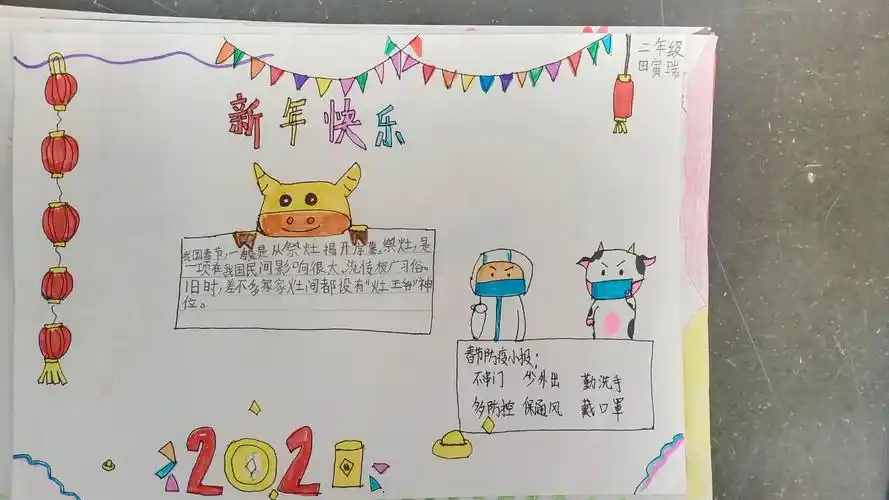 二年级
田寅瑞
新年快乐
我国春节,一般是从祭灶揭开序幕。祭灶,是
一项在我国民间影响很大、流传极广习俗。
旧时,差不多家家灶间都设有“灶王爷”神
位。
春节防疫小报:
不串门 少外出 勤洗手
多防控 保通风 戴口罩
2021